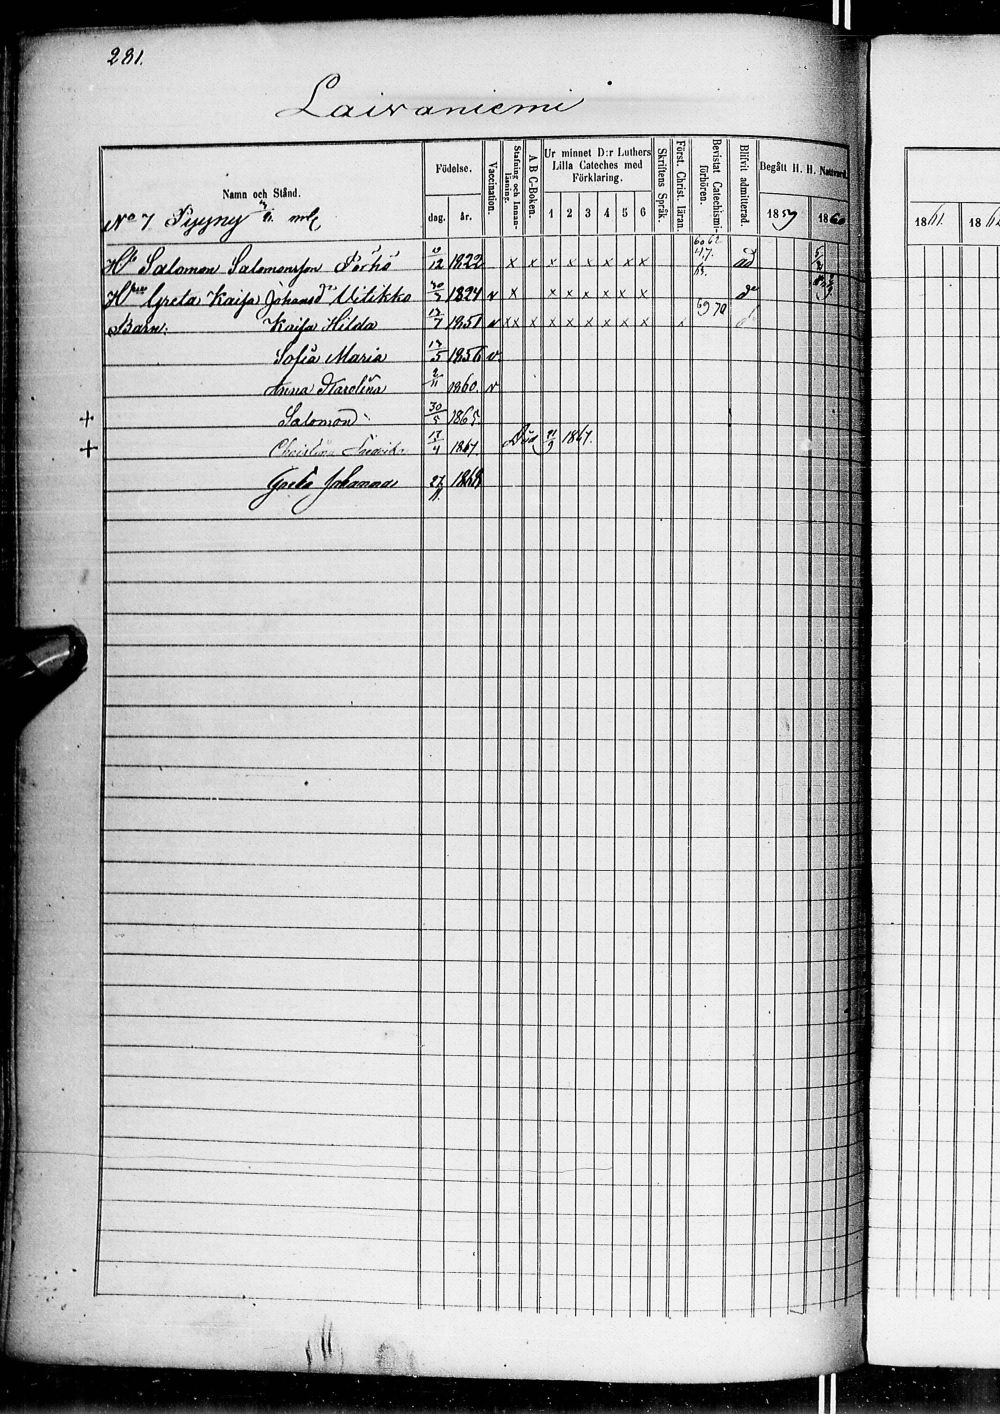 281.
Laivaniemi
Namn och Stånd.
Födelse.
dag.
år.
Vaccination.
Stafning och Innanläsning.
A B C-Boken.
Ur minnet D:r Luthers Lilla Cateches med Förklaring.
1 2 3 4 5 6
Skriftens Språk.
Först. Christ. läran.
Bevistat Catechismiförhören.
Blifvit admitterad.
Begått H. H. Nattvard.
1859
1860
1861
1862
No 7 Pyyny
Salomon Salomonsson 12 1822 x x x x x x x x x ad
Greta Kaisa Johansd:r Uitikko 30/5 1824 v x x x x x x x
Barn: Kaisa Hilda 1851 v x x x x x x x x x x 69 70
Sofia Maria 5 1856 v
Anna Karolina 2/11 1860. v
+ Salomon 30/5 1865.
+ Christina Fredrika 4 1867. Död 9 1867.
Greta Johanna 27/11. 1868